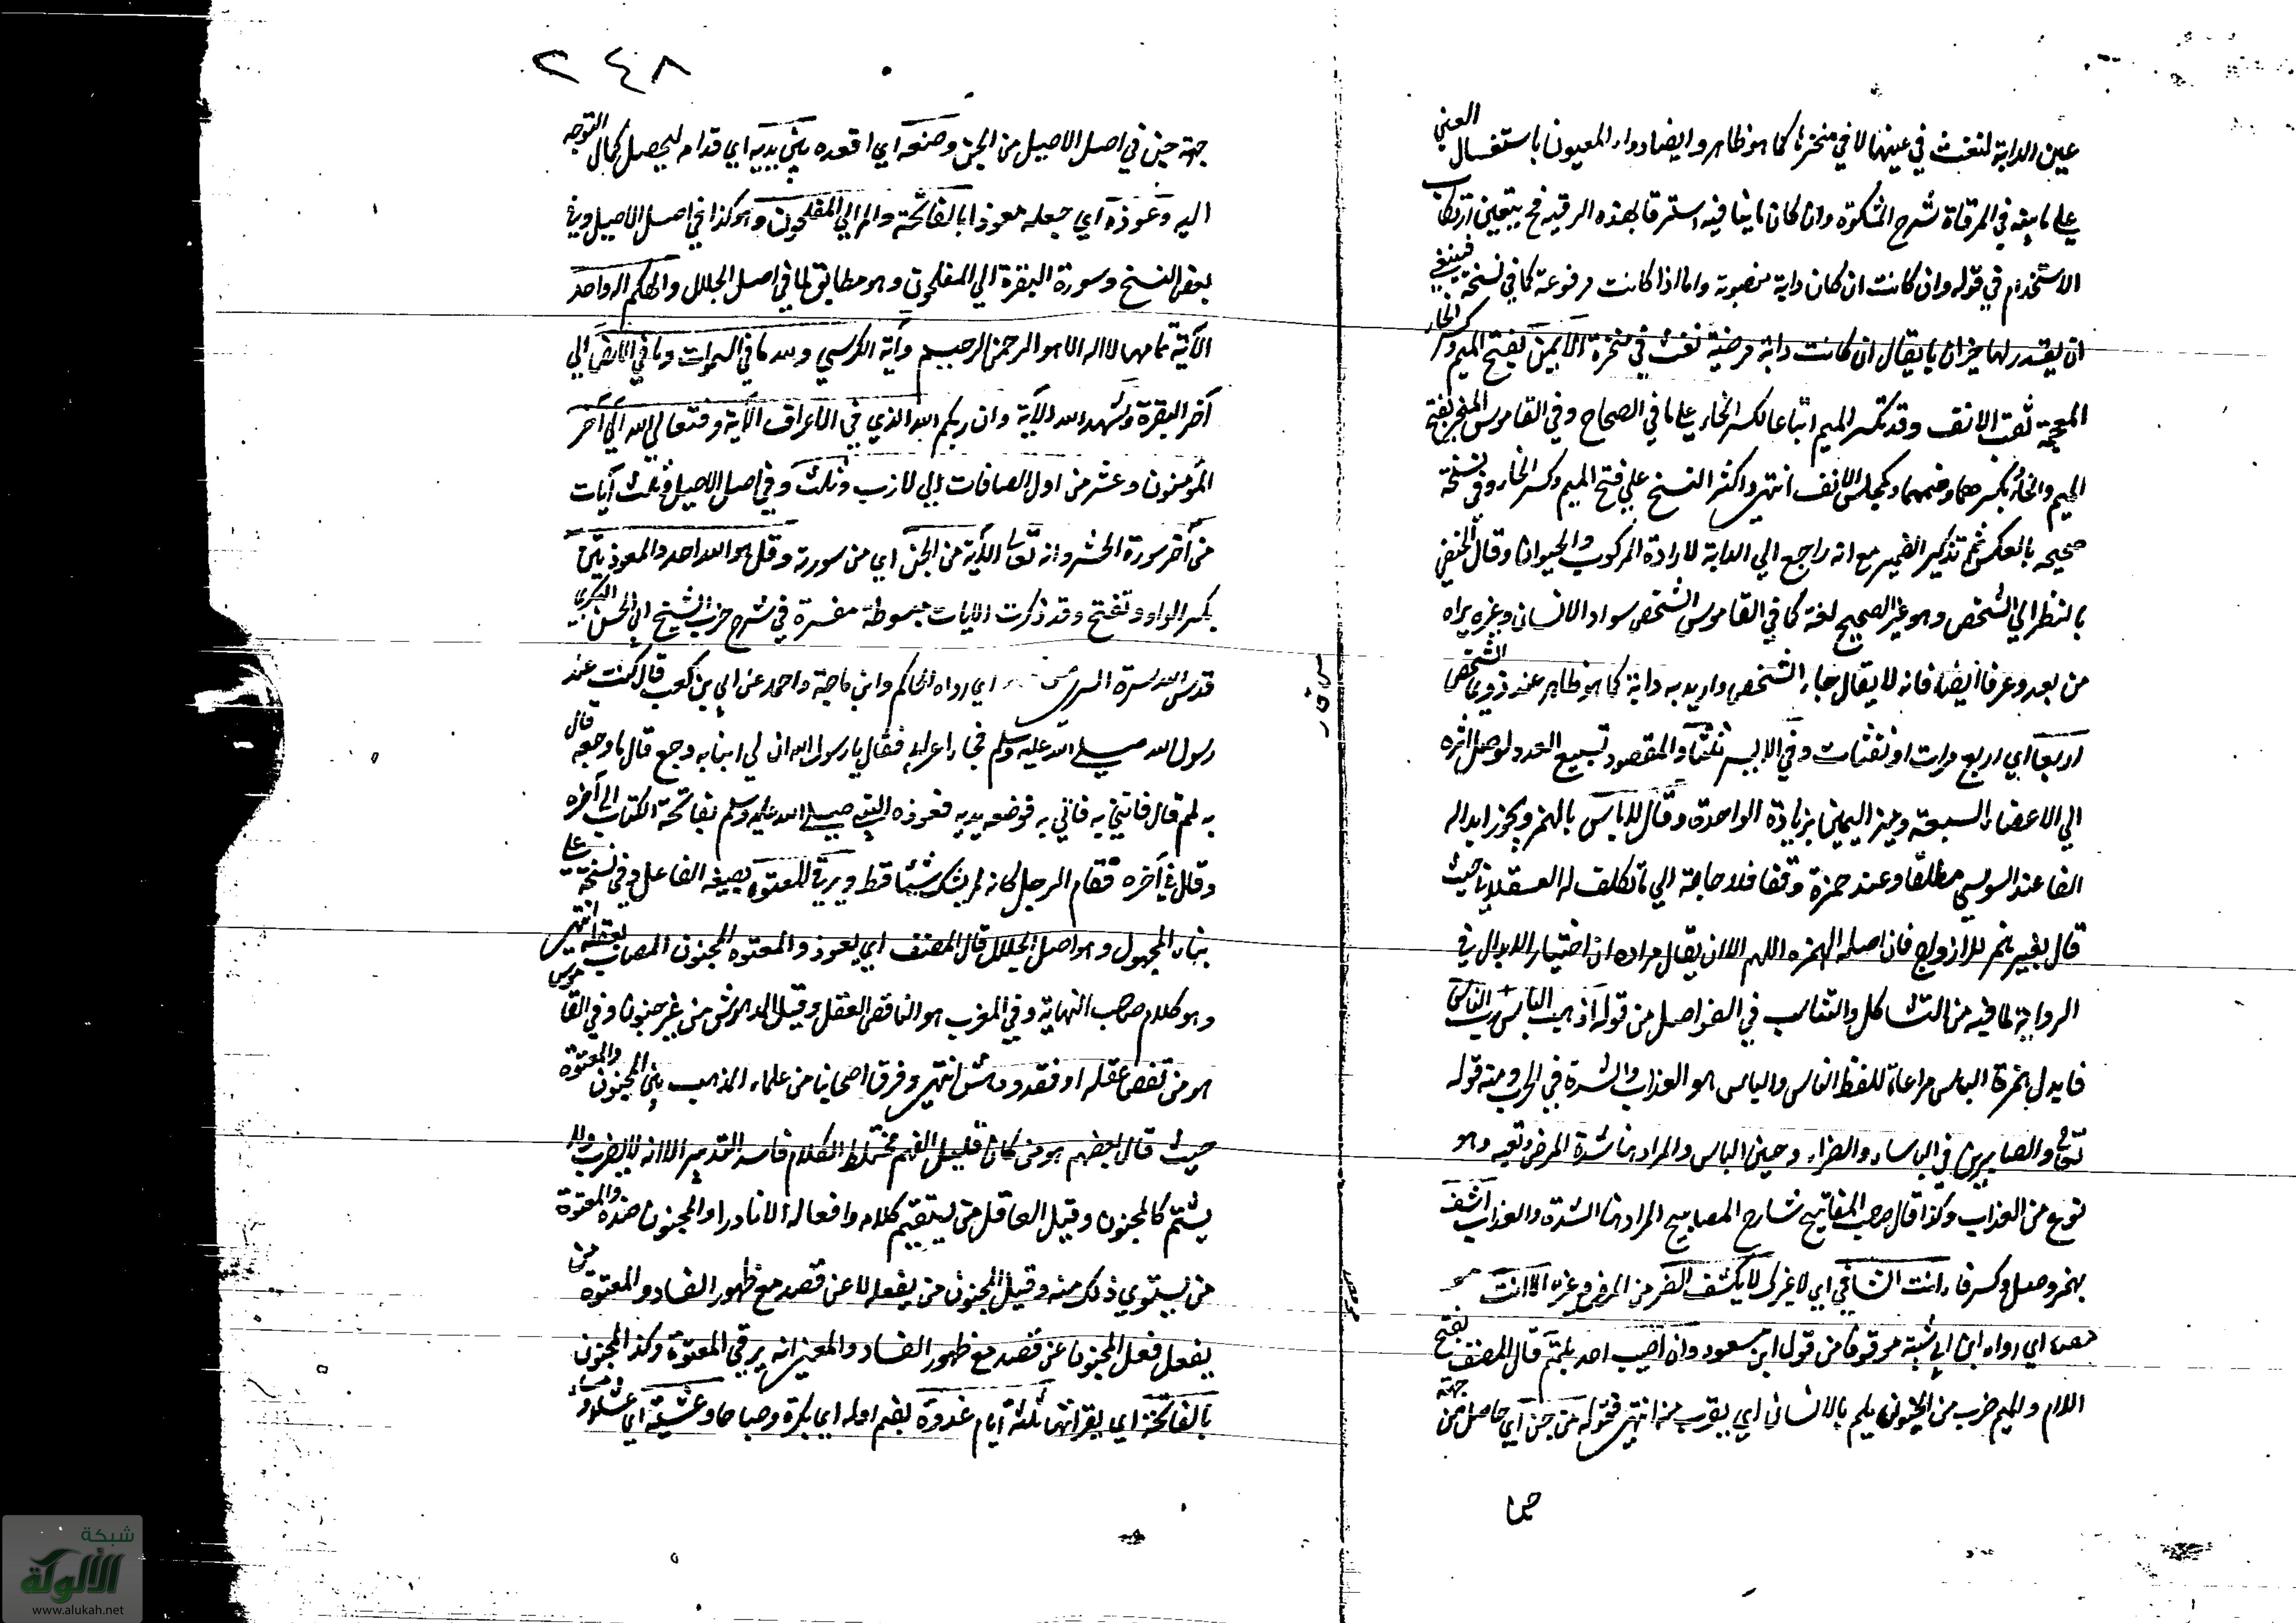 عين الدابة لنفث في عينها لا في منخرها كما هو ظاهر وايضا دواء المعيون باستغسال العين
علي ما بينه في المرقاة شرح المشكوة وان كان ما ينافيه استرقا بهذه الرقيه فح يتعين ارتكاب
الاستخدام في قوله وان كانت ان كان دابة منصوبة واما اذا كانت مرفوعة كما في نسخة فينبغي
ان يقدر لها خبران يا يقال ان كانت دابة مرضية نفث في منخره الايمن بفتح الميم وكسر الخاء
المعجمة ثقب الانف وقد تكسر الميم اتباعا لكسر الخاء علي ما في الصحاح وفي القاموس المنخر بفتح
الميم والخاء وبكسرهما وضمهما وكمجلس الانف انتهى واكثر النسخ علي فتح الميم وكسر الخاء وفي نسخة
صحيحه بالعكس ثم تذكير الضمير مع انه راجع الي الدابة لارادة المركوب والحيوان وقال الحنفي
بالنظر الي الشخص وهو غير الصحيح لغة كما في القاموس الشخص سواد الانسان وغيره يراه
من بعد وعرفا ايضا فانه لا يقال جاء الشخص واريد به دابة كما هو ظاهر عند ذوي الشخص
اربعا اي اربع مرات او نفثات وفي الايسر ثلثا والمقصود تسبيع العدد لوصل اثره
الي الاعضاء السبعة وميز اليمين بزيادة الواحدة وقال لاباس بالهمز ويجوز ابداله
الفا عند السوسي مطلقا وعند حمزة وقفا فلا حاجة الي ما تكلف له العسقلاني حيث
قال بغير همز للازدواج فان اصله الهمزه اللهم الا ان يقال مراده ان اختيار الابدال في
الرواية لما فيه من التشاكل والتناسب في الفواصل من قوله اذهب الباس رب الناس
فابدل همزة الباس مراعاة للفظ الناس والباس هو العذاب والشدة في الحرب ومنه قوله
تعالى والصابرين في الباساء والضراء وحين الباس والمراد هنا شدة المرض وتعبه وهو
نوع من العذاب وكذا قال صاحب المفاتيح شارح المصابيح المراد هنا الشدة والعذاب اشف
بهمز وصل وكسر فاء انت الشافي اي لا غيرك لا يكشف الضر من المرض وغيره الا انت
مص اي رواه ابن ابي شيبة موقوفا من قول ابن مسعود وان اصيب احد بلمم قال المصنف بفتح
اللام والميم ضرب من الجنون يلم بالانسان اي يقرب منه انتهى فقوله من جن اي حاصل من جهة
٢٤٨
جهة جن في اصل الاصيل من الجن وضعه اي اقعده بين يديه اي قدامه ليحصل كمال التوجه
اليه وعوذه اي جعله معوذا بالفاتحة والم الي المفلحون وهكذا في اصل الاصيل وفي
بعض النسخ وسورة البقرة الي المفلحون وهو مطابق لما في اصل الجلال والهكم اله واحد
الآية تمامها لا اله الا هو الرحمن الرحيم وآية الكرسي ولله ما في السموات وما في الارض الي
آخر البقرة وشهد الله الآية وان ربكم الله الذي في الاعراف الآية وفتعالي الله الي آخر
المؤمنون وعشر من اول الصافات الي لازب وثلث وفي اصل الاصيل وثلث آيات
من آخر سورة الحشر وانه تعالى الآية من الجن اي من سورة وقل هو الله احد والمعوذتين
بكسر الواو وتفتح وقد ذكرت الايات مبسوطة مفسرة في شرح حزب الشيخ ابي الحسن البكري
قدس الله سره السري اي رواه الحاكم وابن ماجة واحمد عن ابي بن كعب قال كنت عند
رسول الله صلي الله عليه وسلم فجاء اعرابي فقال يا رسول الله ان لي ابنا به وجع قال ما وجعه قال
به لمم قال فاتني به فاتي به فوضعه بين يديه فعوذه النبي صلي الله عليه وسلم بفاتحة الكتاب الي آخره
وقال في آخره فقام الرجل كانه لم يشك شيئا قط ويرقي المعتوه بصيغة الفاعل وفي نسخة علي
بناء المجهول وهو اصل الجلال قال المصنف اي يعوذ والمعتوه المجنون المصاب بعقله انتهى
وهو كلام صاحب النهاية وفي المغرب هو الناقص العقل وقيل المدهوش من غير جنون وفي القاموس
هو من نقص عقله او فقد ودهش انتهى وفرق اصحابنا من علماء المذهب بين المجنون والمعتوه
حيث قال بعضهم هو من كان قليل الفهم مختلط الكلام فاسد التدبير الا انه لا يضرب ولا
يشتم كالمجنون وقيل العاقل من يستقيم كلامه وافعاله الا نادرا والمجنون ضده والمعتوه
من يستوي ذلك منه وقيل المجنون من يفعله لا عن قصد مع ظهور الفساد والمعتوه من
يفعل فعل المجنون عن قصد مع ظهور الفساد والمعني انه يرقي المعتوه وكذا المجنون
بالفاتحة اي بقرائتها ثلثة ايام غدوة بضم اوله اي بكرة وصباحا وعشية اي عشاء ومساء
شبكة
الألوكة
www.alukah.net